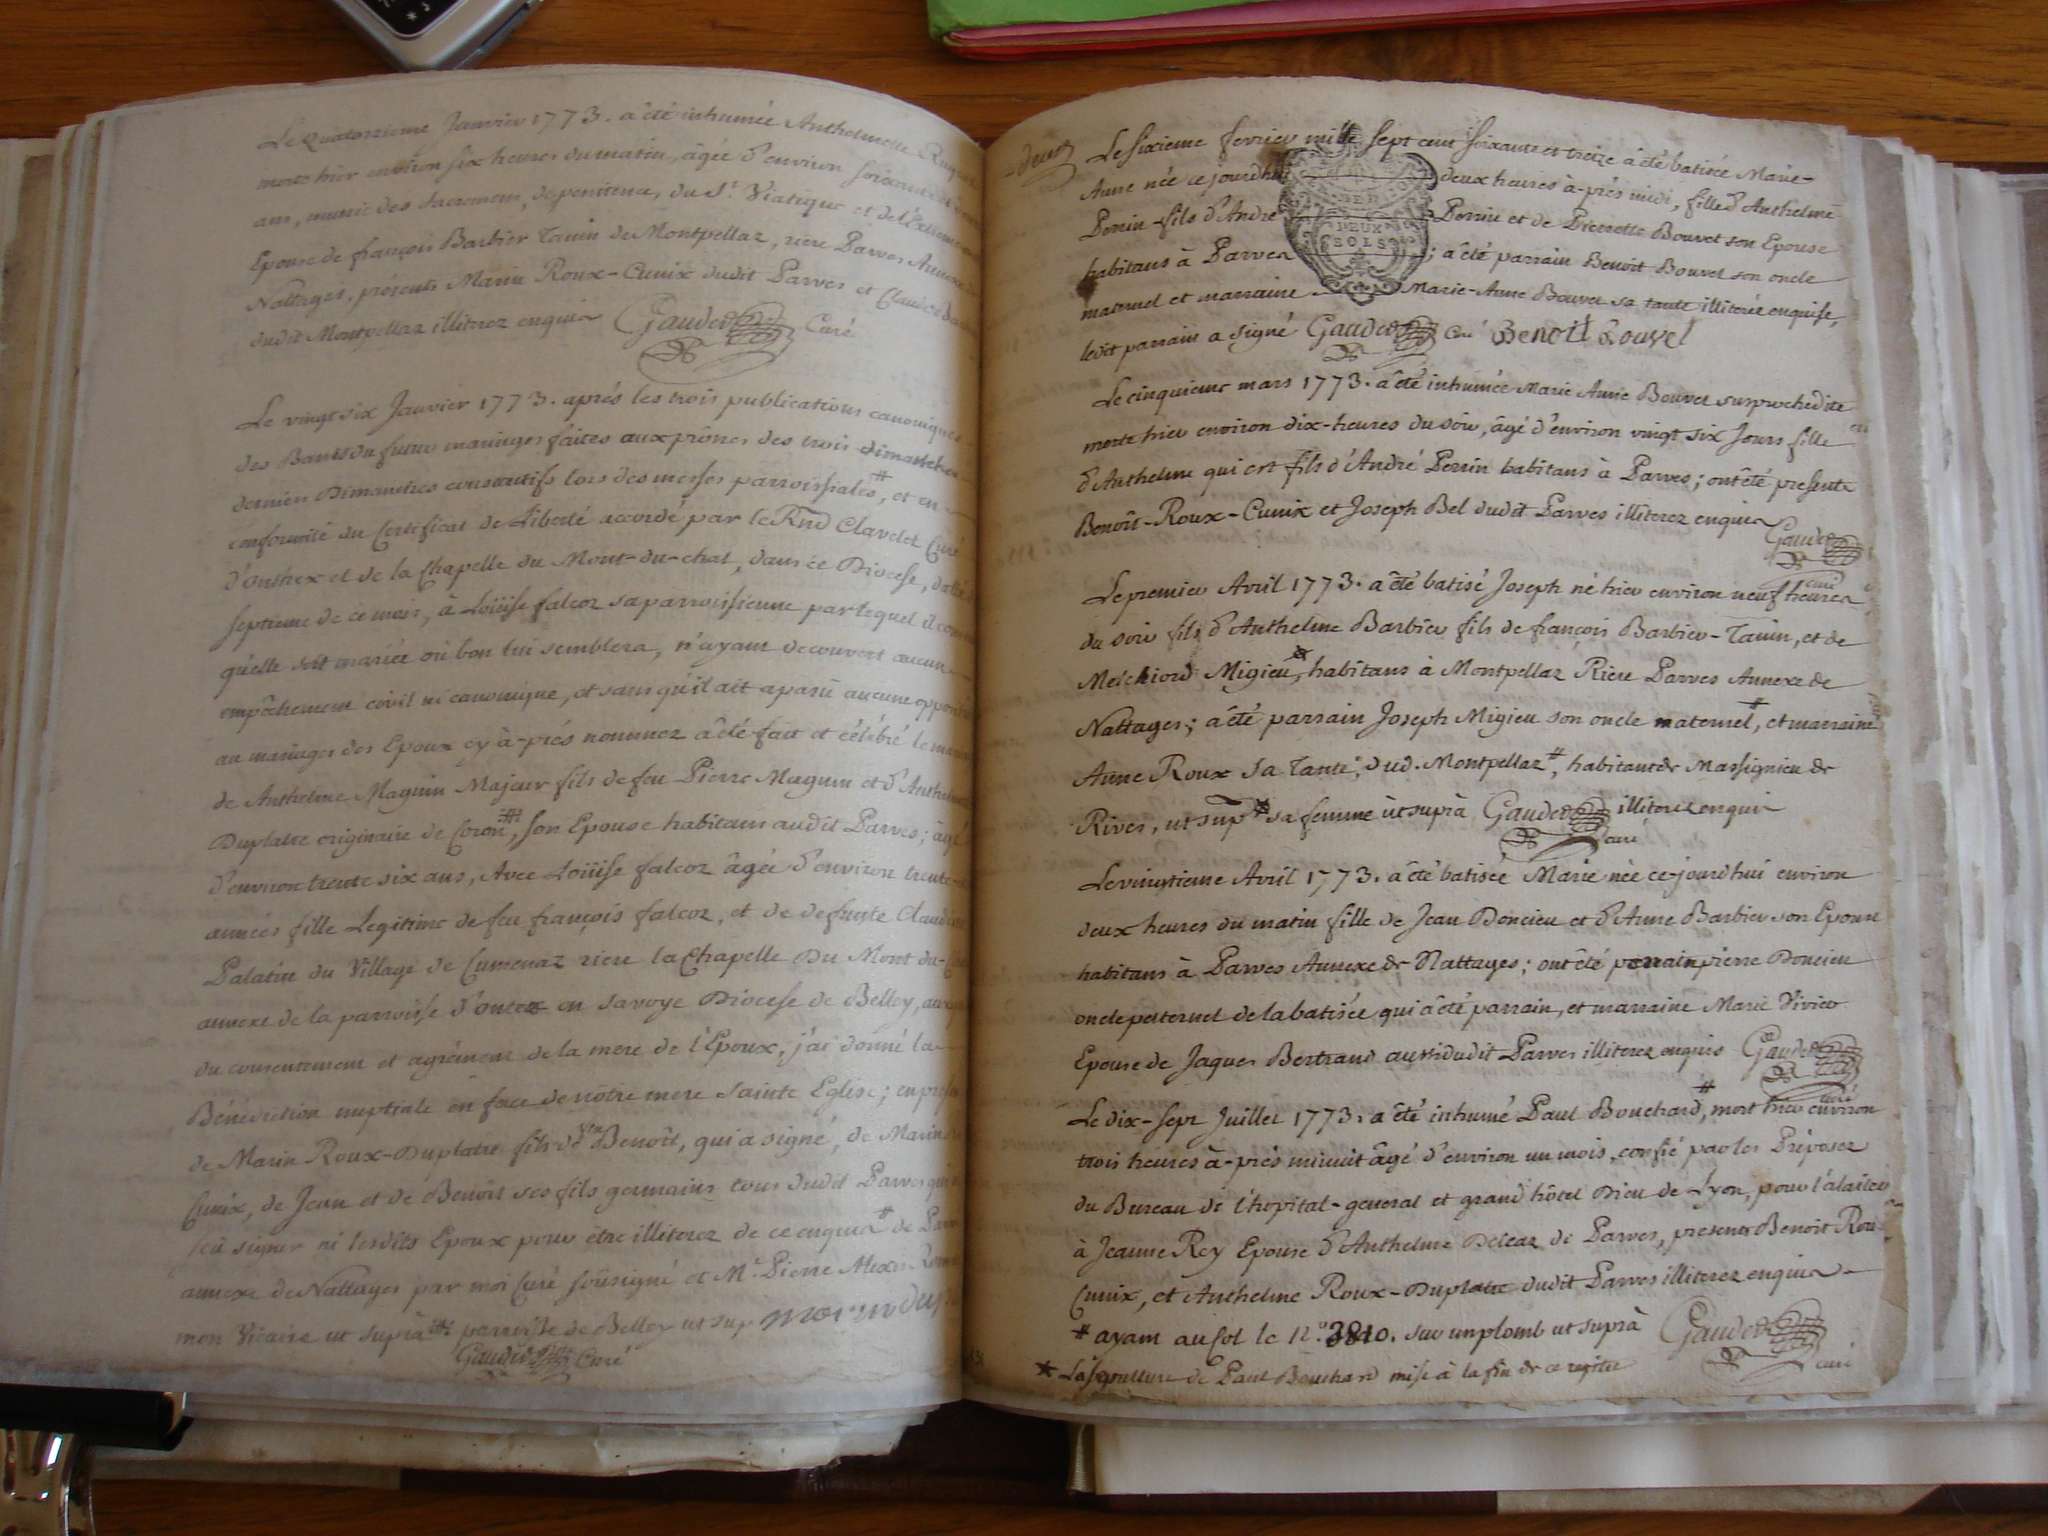 Le quatorzieme Janvier 1773. a êté inhumée Anthelmette
morte hier environ six heures du matin, âgée d'environ soixante
ans, munie des sacremens, de penitence, du St. Viatique et de l'Extreme
Epouse de françois Barbier Tauin de Montpellaz, riere Parves Annexe
Nattages, présents Marin Roux-Cunix dudit Parves et Claude
dudit Montpellaz illiterez enquis Gauder Curé
Le vingt six Janvier 1773. aprés les trois publications canoniques
des Bants du futur mariages faites aux prônes des trois dimanches
derniers Dimanches consecutifs lors des messes parroissiales, et en
conformité du Certificat de Liberté accordé par le Rnd Clavelet Curé
d'onthex et de la Chapelle du Mont-du-chat, dans ce Diocese, datté
septieme de ce mois, à Loüise falcoz sa parroissienne par lequel il
qu'elle soit mariée où bon lui semblera, n'ayant decouvert aucun
empâchement civil ni canonique, et sans qu'il ait aparû aucune
au mariages des Epoux cy à-prés nommez a êté fait et célébré le
de Anthelme Magnin Majeur fils de feu Pierre Magnin et d'
Duplatre originaire de Coron #, son Epouse habitans audit Parves;
d'environ trente six ans, Avec Loüise falcoz âgée d'environ trente
années fille Legitime de feu françois falcoz, et de defunte
Palatin du Village de Cumenaz riere la Chapelle Du Mont du-
annexe de la parroisse d'ontex en savoye Diocese de Belley,
du consentement et agrément de la mere de l'Epoux, j'ai donné la
Bénédiction nuptiale en face de nôtre mere sainte Eglise;
de Marin Roux-Duplatre fils de Benoît, qui a signé, de Marin
Cunix, de Jean et de Benoît ses fils germains tous dudit Parves
sçu signer ni lesdits Epoux pour être illiterez de ce enquis # de
annexe de Nattages par moi Curé soüsigné et Mr. Pierre
mon Vicaire ut suprà # parroisse de Belley ut sup
Gauder Curé
deux
Le sixieme fevrier mille sept cent soixante et treize a êté batisée Marie-
Anne née ce jourdhui deux heures à-prés midi, fille d'Anthelme
DEUX SOLS
Perrin fils d'André Perrin et de Pierrette Bouvet son Epouse
habitans à Parves ; a êté parrain Benoit Bouvet son oncle
maternel et marraine Marie-Anne Bouvet sa tante illiterée enquise,
ledit parrain a signé Gauder Curé Benoit Bouvet
Le cinquieme mars 1773. a êté inhumée Marie Anne Bouvet surprochedite
morte hier environ dix-heures du soir, âgé d'environ vingt six Jours fille
d'Anthelme qui est fils d'André Perrin habitans à Parves; ont êté presents
Benoît-Roux-Cunix et Joseph Bel dudit Parves illiterez enquis
Gauder curé
Le premier Avril 1773. a êté batisé Joseph né hier environ neuf heures
du soir fils d'Anthelme Barbier fils de françois Barbier-Tauin, et de
Melchiord Migieu, habitans à Montpellaz Riere Parves Annexe de
Nattages; a êté parrain Joseph Migieu son oncle maternel #, et marraine
Anne Roux sa Tante, dud. Montpellaz #, habitant de Massignieu de
Rives, ut sup # sa femme ùt suprà Gauder illiterez enquis
curé
Le vingtieme Avril 1773. a êté batisée Marie née ce-jourd'hui environ
deux heures du matin fille de Jean Doncieu et d'Anne Barbier son Epouse
habitans à Parves Annexe de Nattages; ont êté parrain pierre Doncieu
oncle paternel de la batisée qui a êté parrain, et marraine Marie Vivier
Epouse de Jaques Bertrand aussi dudit Parves illiterez enquis Gauder
curé
Le dix-sept Juillet 1773. a êté inhumé Paul Bouchard #, mort hier environ
trois heures à-prés minuit âgé d'environ un mois, confié par les Préposez
du Bureau de l'hopital-general et grand hôtel Dieu de Lyon, pour l'âlaiter
à Jeanne Rey Epouse d'Anthelme Deleaz de Parves, presents Benoit Roux
Cunix, et Anthelme Roux-Duplatre dudit Parves illiterez enquis
# ayant au Col le n.o 3810. sur un plomb ut suprà Gauder
curé
* La sepulture de Paul Bouchard mise à la fin de ce registre